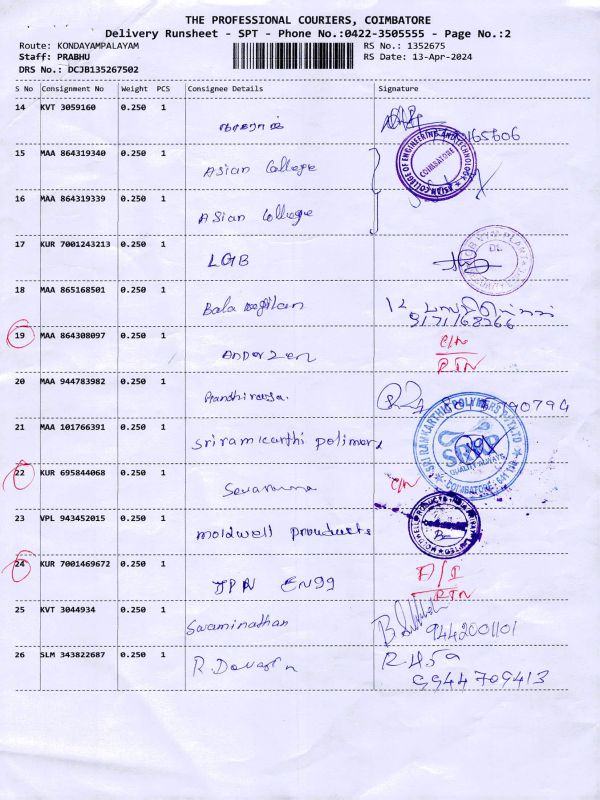 THE PROFESSIONAL COURIERS, COIMBATORE
Delivery Runsheet - SPT - Phone No.:0422-3505555 - Page No.:2
Route: KONDAYAMPALAYAM RS No.: 1352675
Staff: PRABHU RS Date: 13-Apr-2024
DRS No.: DCJB135267502
S No Consignment No Weight PCS Consignee Details Signature
14 KVT 3059160 0.250 1
15 MAA 864319340 0.250 1 Asian College
16 MAA 864319339 0.250 1 Asian College
ASIAN COLLEGE OF ENGINEERING AND TECHNOLOGY
COIMBATORE
17 KUR 7001243213 0.250 1 LGB
18 MAA 865168501 0.250 1 Bala
19 MAA 864308097 0.250 1 Anderzen C/N
RTN
20 MAA 944783982 0.250 1
21 MAA 101766391 0.250 1 sriramkarthi polimers
SRI RAM KARTHIC POLYMERS PVT LTD
SRKP
QUALITY ALWAYS
22 KUR 695844068 0.250 1 C/N
23 VPL 943452015 0.250 1 moldwell prouducts
24 KUR 7001469672 0.250 1 JPN ENGG A/I
RTN
25 KVT 3044934 0.250 1 Swaminathan
9442001101
26 SLM 343822687 0.250 1 R.
9944709413